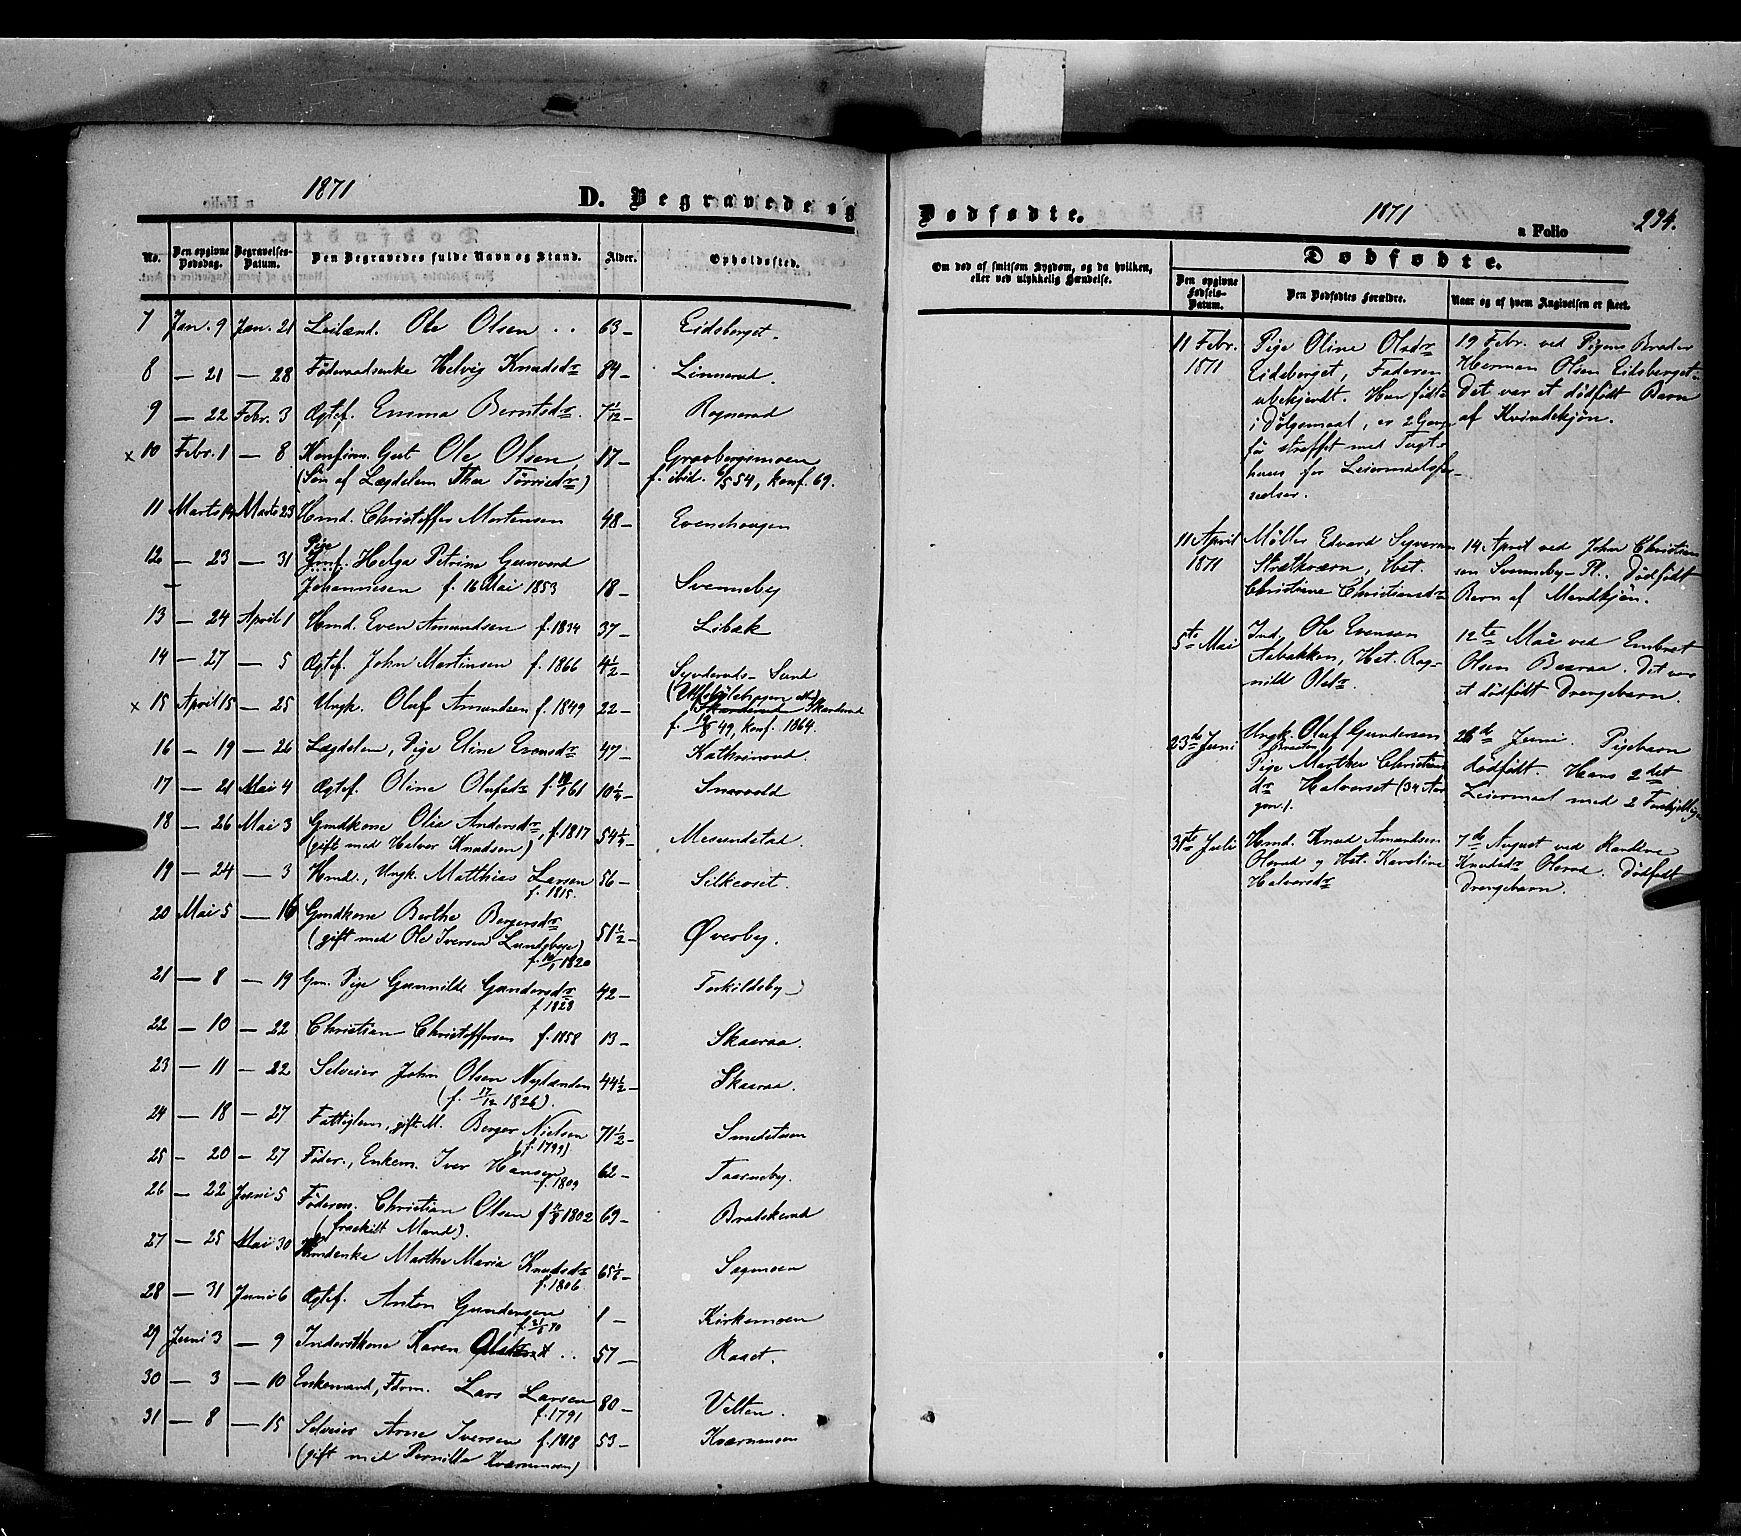 1871
D. Begravede og
No.
Den opgivne Dødsdag.
Begravelses-Datum.
Den Begravedes fulde Navn og Stand.
Alder.
Opholdssted.
7 Jan. 9 Jan. 21 Ole Olsen 63 Eidsberget.
8 — 21 — 28 Føderaadsenke Helvig Knudsdr 84 Linnerud.
9 — 22 Febr. 3 Ægtef. Emma Berntsdr. 7/12 Rognerud
x 10 Febr. 1 — 8 Konfirm. Gut Ole Olsen 17 Graabergsmoen
(Søn af Lægdelem Thea) f. ibid. 6/5 54, konf. 69.
11 Marts 14 Marts 23 Hmd. Christoffer Mortensen 48 Evenshaugen
Pige
12 — 23 — 31 Helga Petrine Gunvord
Johannesen f. 16 Mai 1853 18 Svenneby
13 — 24 April 1 Hmd. Even Amundsen f. 1834 37 Libæk
14 — 27 — 5 Ægtef. John Martinsen f. 1866 4½ Synderuds-Sund
x 15 April 15 — 25 Ungk. Oluf Amundsen f. 1849 22 Skarderud
f. 19/8 49, konf. 1864.
16 — 19 — 26 Lægdelem, Pige Eline Evensdr 47 Kathrinerud.
17 — 21 Mai 4 Ægtef. Oline Olufsdr 61 Snarvold
18 — 26 Mai 3 Gmdkone Olia Andersdr, f. 1817 Mesundstad.
(gift med Halvor Knudsen)
19 — 24 — 3 Hmd., Ungk. Matthias Larsen 56 Silkeset.
f. 1815.
20 Mai 5 — 16 Gmdkone Berthe Bergersdr 51½ Øverby.
(gift med Ole Iversen Lundsbye)
f. 1820
21 — 8 — 19 Gm. Pige Gunnilde Gundersdr 42 Torkildsby
f. 1828
22 — 10 — 22 Christian Christoffersen f. 1858 13 Skaaraa.
23 — 11 — 22 Selveier John Olsen Nylænden 44½ Skaaraa.
(f. 17/12 1826).
24 — 18 — 27 Fattiglem, gift M. Berger Nielsen 71½ Smedstuen
(f. 1799)
25 — 20 — 27 Føder., Enkem. Iver Hansen 62 Taarneby.
f. 1809
26 — 22 Juni 5 Føderm. Christian Olsen 1802 69 Bratskerud
(fraskilt Mand).
27 — 25 Mai 30 Marthe Maria Knudsdr Sagmoen
f. 1806
28 — 31 Juni 6 Ægtef. Anton Gundersen 1 Kirkemoen
29 Juni 3 — 9 Inderstkone Karen 57 Raaet.
30 — 3 — 10 Enkemand, Fdrm. Lars Larsen 80 Velten.
f. 1791
31 — 8 — 15 Selveier Arne Iversen f. 1818 53 Kværnmoen
(gift med Pernille Kværnmoen)
Dødfødte.
1871
a Folio
294.
Om død af smitsom Sygdom, og da hvilken,
eller ved ulykkelig Hændelse.
Dødfødte.
Den opgivne Fødsels-Datum.
Den Dødfødtes Forældre.
Naar og af hvem Angivelsen er skeet.
11 Febr. Pige Oline Olsdr 19 Febr. ved Pigens Broder
1871 Eidsberget, Faderen Herman Olsen Eidsberget.
ubekjendt. Hun fødte Det var et dødfødt Barn
i Dølgsmaal, er 2 Gange af Kvindekjøn.
før straffet med Tugt-
huus for Leiermaalsfor-
seelser.
11 April Møller Edvard Syversen 14 April ved John Christian-
1871 sen Svenneby-Pl. Dødfødt
Christine Christiansdr Barn af Mandkjøn.
5te Mai Ind. Ole Evensen 12te Mai ved Embret
Aabakken, Hst. Rag- Olsen Baaraa. Det var
nild Olsdr. et dødfødt Drengebarn.
23de Juni Ungk. Oluf Gundersen 28de Juni. Pigebarn
Pige Marthe Christians- dødfødt. Hans 2det
dr Halvorset (34 Aar Leiermaal med 2 Forskjellige
gm).
31te Juli Hmd. Knud Amundsen 7de August ved Karoline
Olsrud og Hst. Karoline Knudsdr Olsrud. Dødfødt
Halvorsdr Drengebarn.